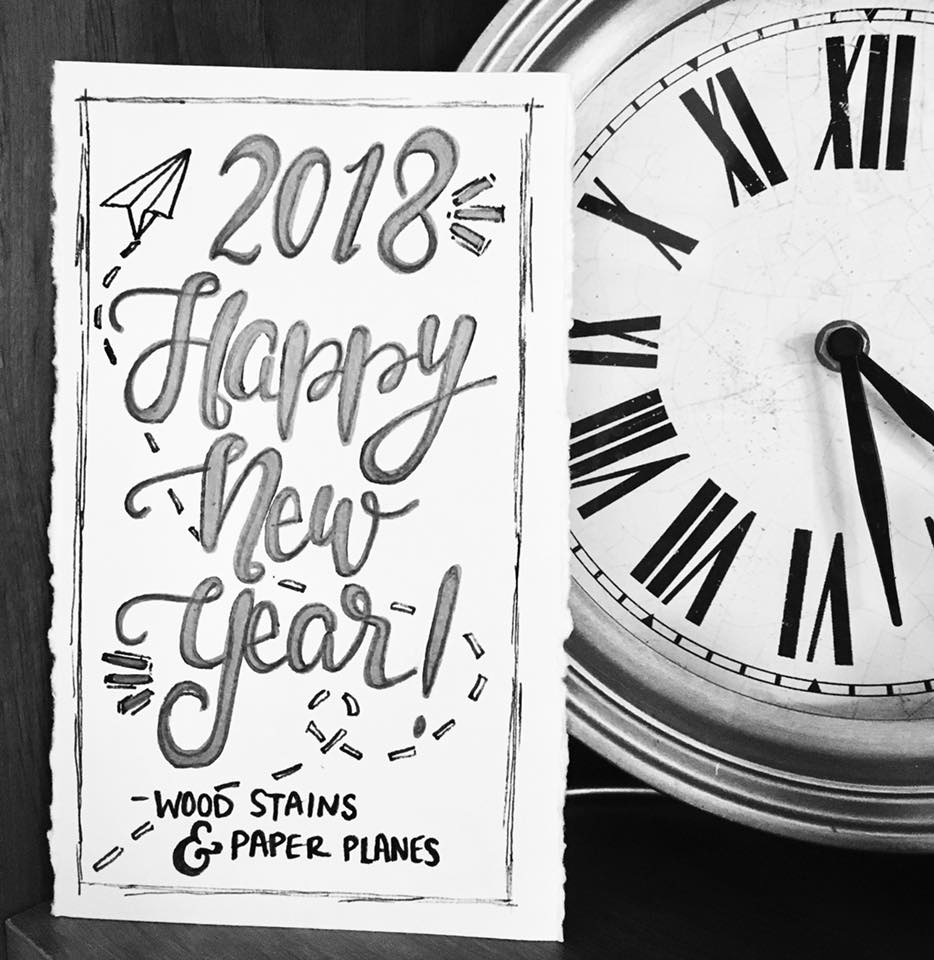 2018
Happy
New
Year!
-WOOD STAINS
& PAPER PLANES
XII
XI
X
IX
VIII
VII
VI